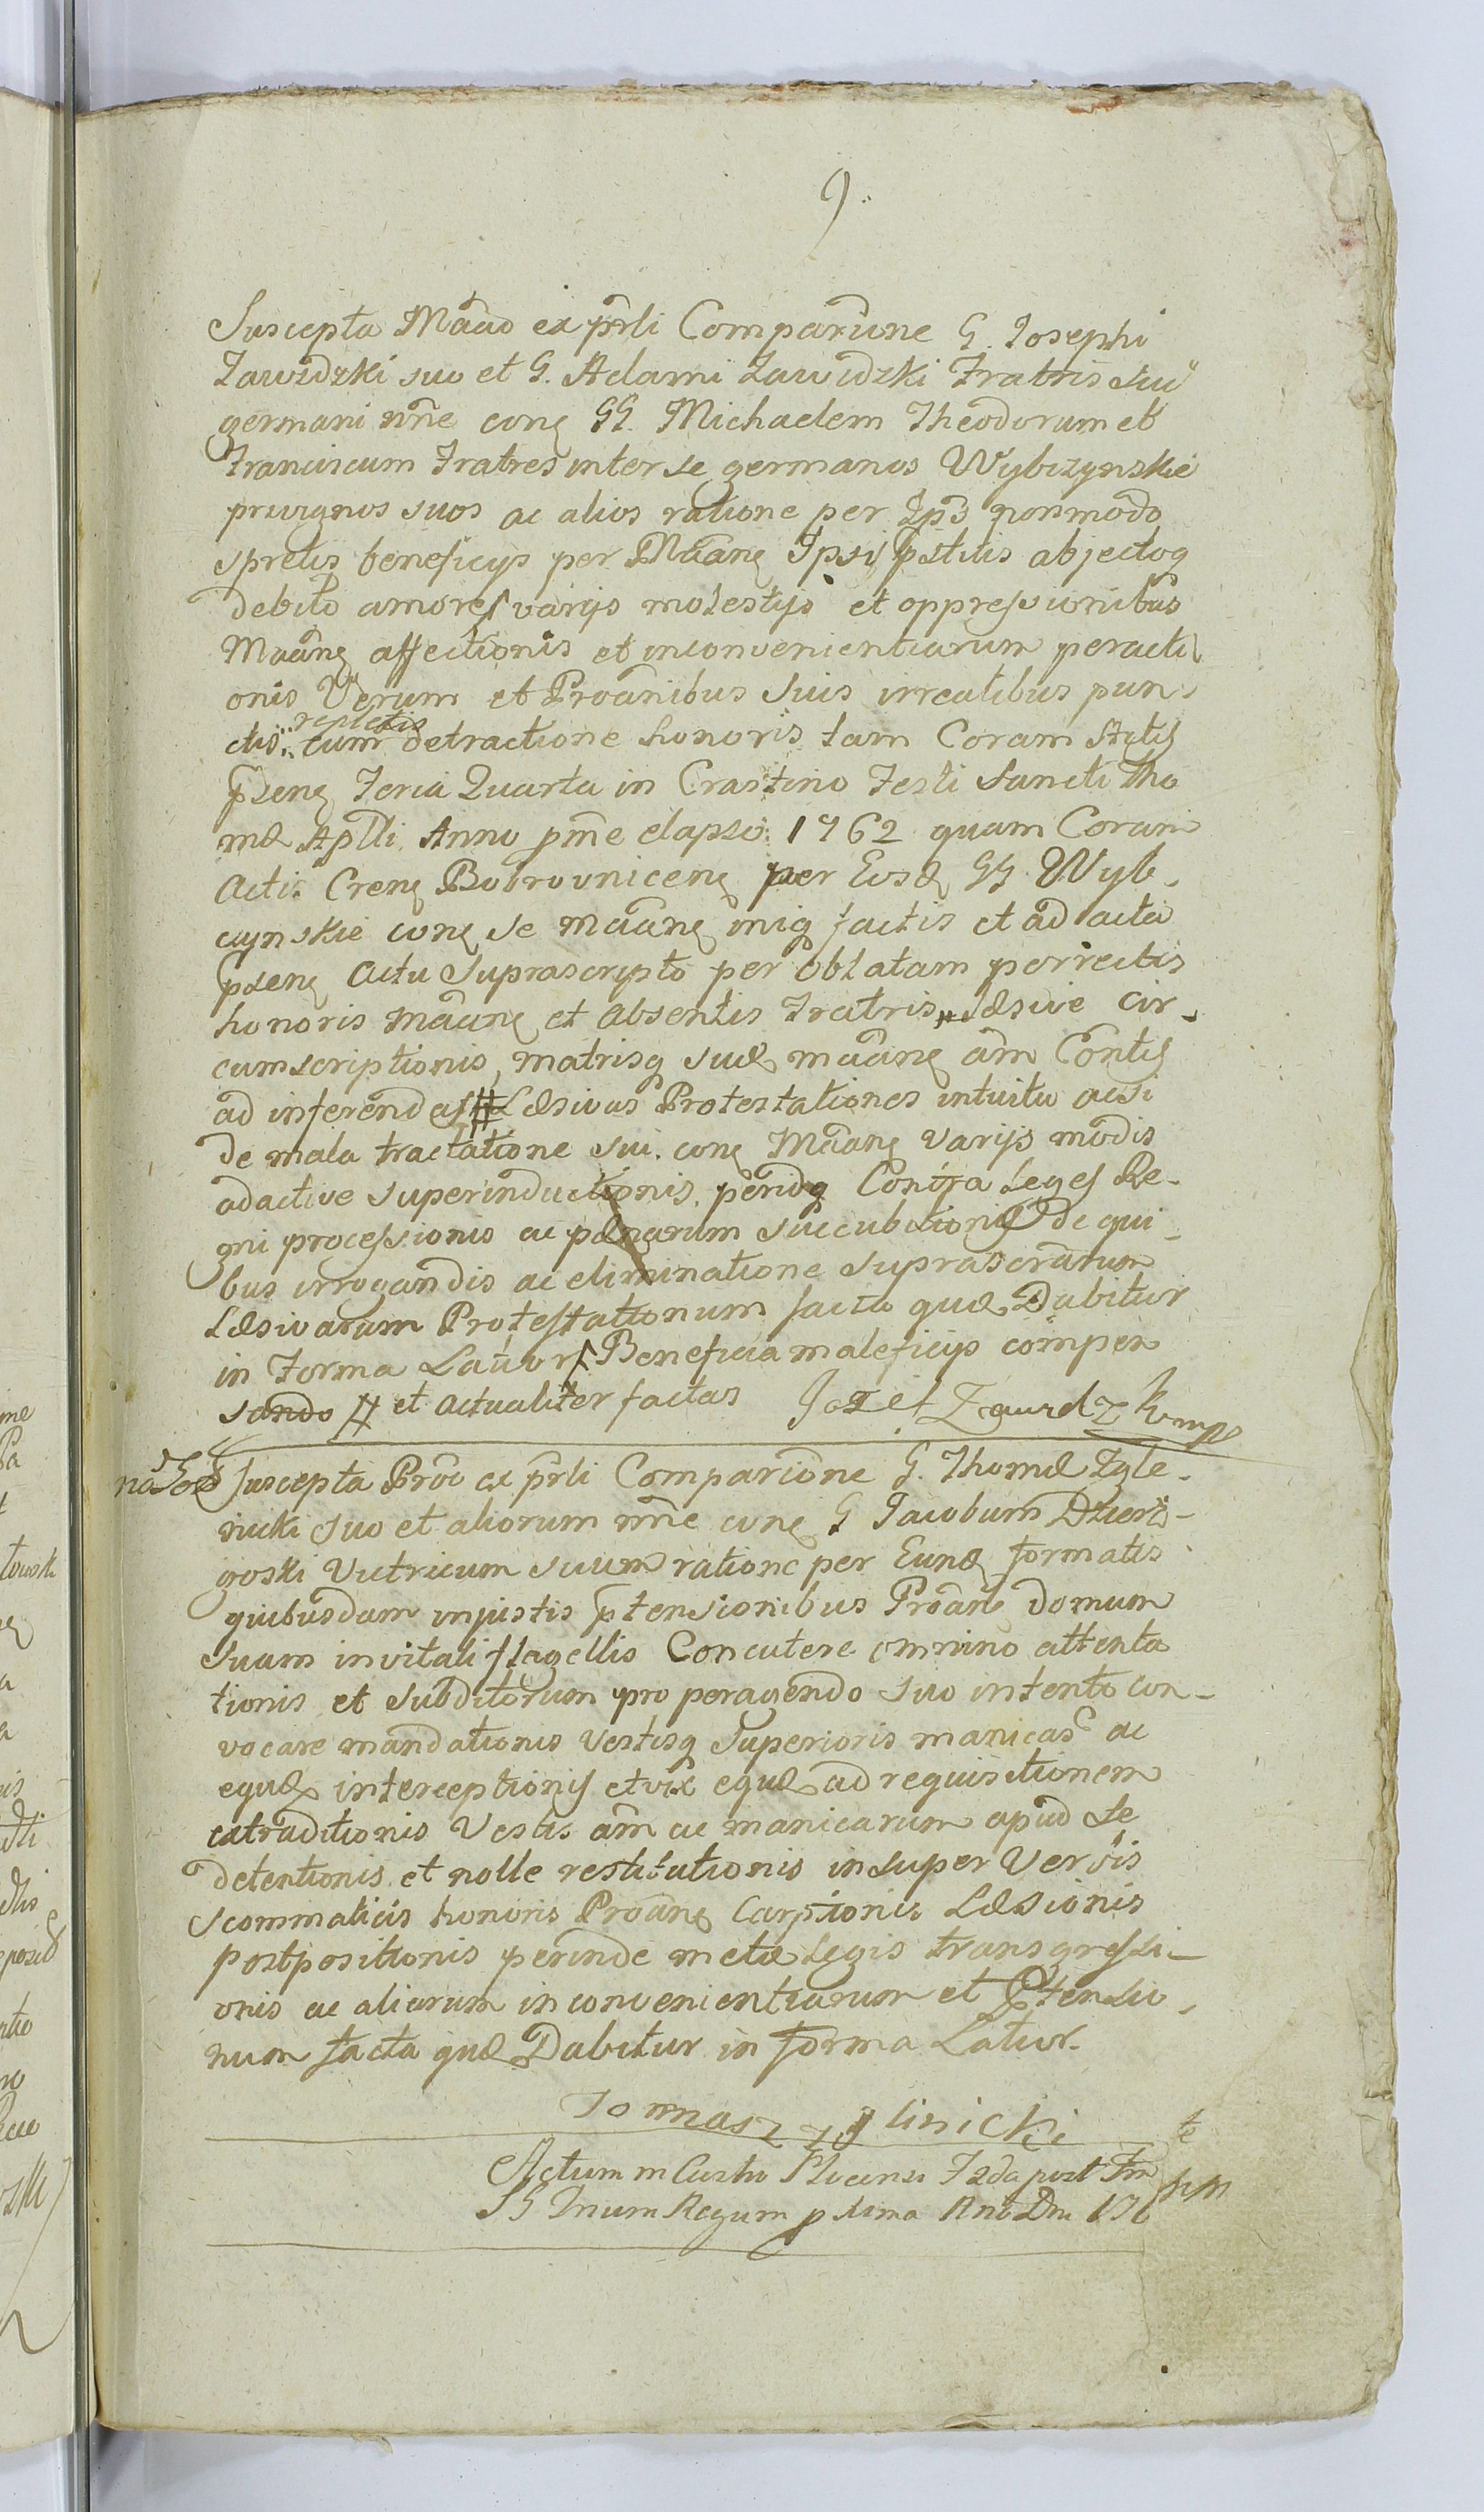 9.
Suscepta Maão ex prli Comparüne G. Josephi
Zawidzki suo et G. Adami Zawidzki Fratris sui
germani nne cong GG. Michaelem Theodorum et
Franciscum Fratres inter se germanos Wybczynskie
privignos suos ac alios ratione per Ips nonmodo
spretis beneficys per Maang Ipsis pstitis abjectoq
debito amore varijs molestijs et oppressionibus
Maang affectionis et inconvenientiarum peracti
onis Verum et Proanibus suis irreatibus pun
repletis
ctis cum detractione honoris tam Coram Actis
pseng Feria Quarta in Crastino Festi Sancti Tho
mæ Aplli Anno pme elapso 1762 quam Coram
Actis Creng Bobrovniceng per Eosd GG Wyb
czynskie cong se Maang iniq factis et ad acta
pseng Actu Suprascripto per oblatam porrectis
honoris Maang et Absentis Fratris # Læsive Cir
cumscriptionis, matrisq suæ maang am Contis
ad inferendas # Læsivas Protestationes intuitu acsi
de mala tractatione sui cong Maang varijs modis
adactive superinductionis, perindq Contra Leges Re-
gni processionis ac pænarum succubitionis de qui
bus irrogandis ac eliminatione suprascratarum
Læsivarum Protestationum facta quæ Dabitur
in Forma Latiori Beneficia maleficijs compen
sando # et actualiter factas Jozef Zawidzki mp
Suscepta Proc ex prli Comparicione G. Thomæ Zgle-
nicki suo et aliorum nne cong G Jacobum Dzier-
goski Vitricum suum ratione per Eund formatis
quibusdam injustis ptensionibus Proang domum
suam invitali flagellis Concutere omnino attenta
tionis et subditorum pro peragendo suo intento con-
vocare mandationis Vestisq superioris manicas ac
equæ interceptionis et vix equæ ad requisitionem
extraditionis Vestis am ac manicarum apud se
detentionis et nolle restitutionis insuper Verbis
scommaticis honoris Proang Carptionis Læsionis
postpositionis perinde metæ Legis transgressi-
onis ac aliarum inconvenientiarum et Ptensio
num facta quæ Dabitur in forma Latiori
Tomasz Zglinicki
Actum in Castro Plocensi F 2da post Fm
SS Trium Regum pxima Ano Dni 176